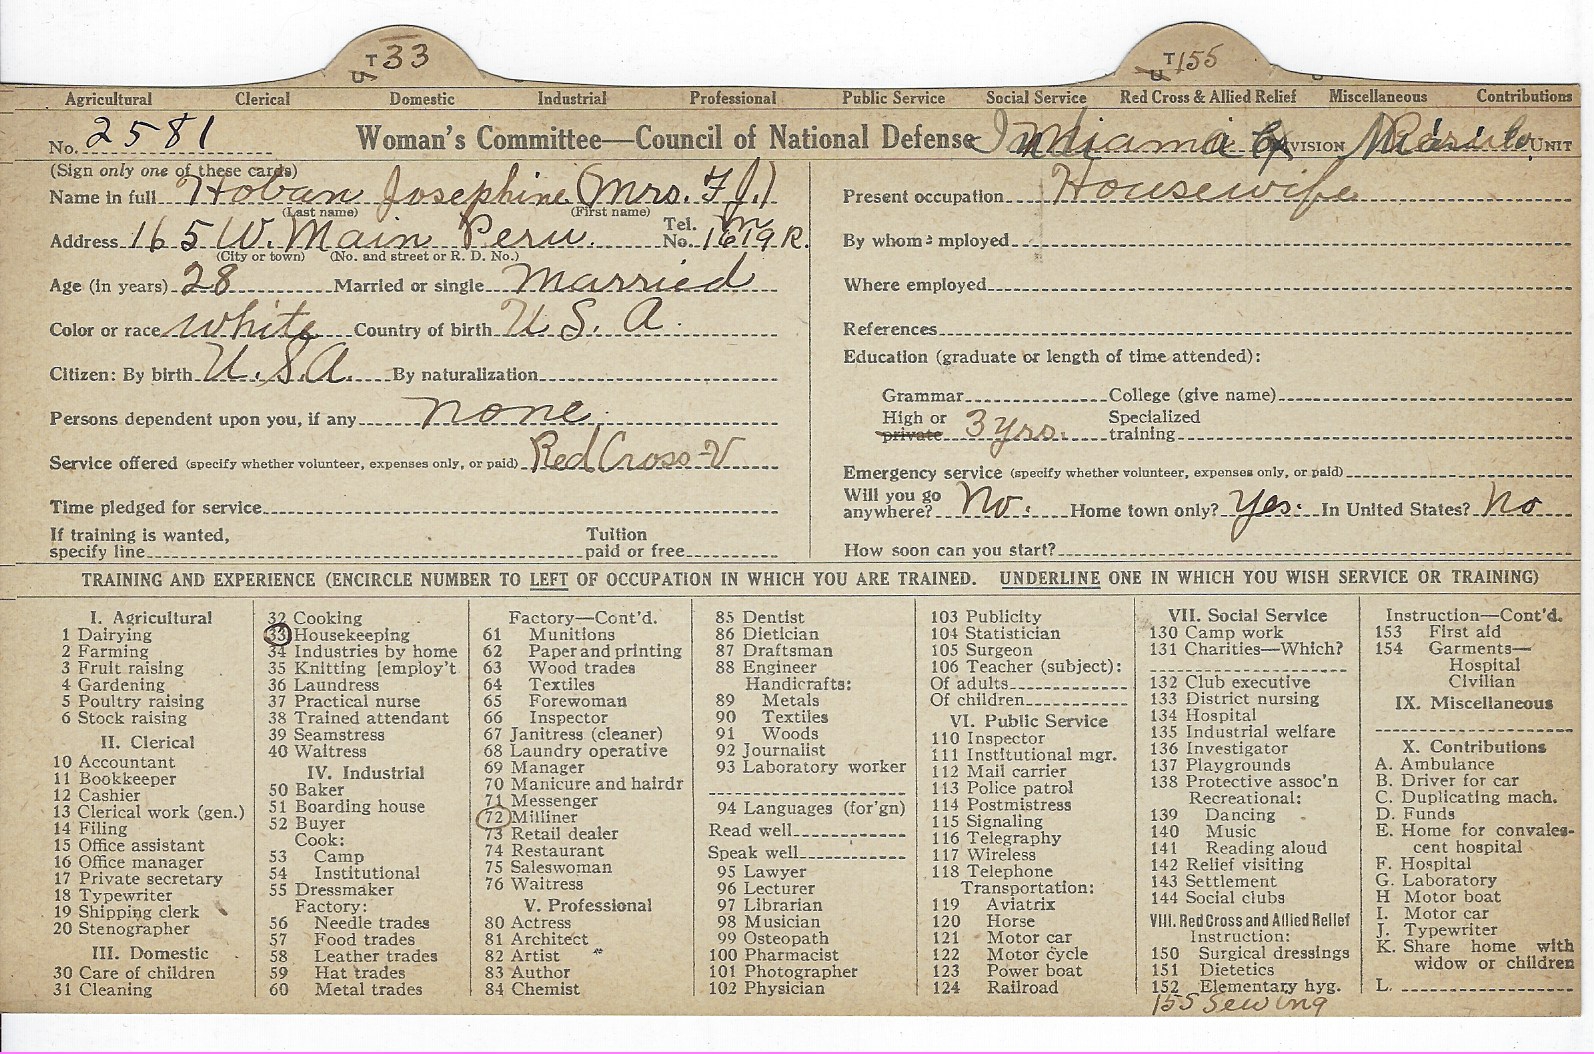 T 33
T 155
Agricultural Clerical Domestic Industrial Professional Public Service Social Service Red Cross & Allied Relief Miscellaneous Contributions
No. 2581 Woman's Committee—Council of National Defense Division Unit
(Sign only one of these cards)
Name in full Hoban Josephine (Mrs. F J.)
(Last name) (First name)
Address 165 W. Main Peru. Tel. No. 1619 R.
(City or town) (No. and street or R. D. No.)
Age (in years) 28 Married or single Married
Color or race white Country of birth U. S. A.
Citizen: By birth U.S.A. By naturalization
Persons dependent upon you, if any none.
Service offered (specify whether volunteer, expenses only, or paid) Red Cross-V
Time pledged for service
If training is wanted, specify line Tuition paid or free
Present occupation Housewife
By whom employed
Where employed
References
Education (graduate or length of time attended):
Grammar College (give name)
High or private 3 yrs. Specialized training
Emergency service (specify whether volunteer, expenses only, or paid)
Will you go anywhere? No. Home town only? Yes. In United States? No
How soon can you start?
TRAINING AND EXPERIENCE (ENCIRCLE NUMBER TO LEFT OF OCCUPATION IN WHICH YOU ARE TRAINED. UNDERLINE ONE IN WHICH YOU WISH SERVICE OR TRAINING)
I. Agricultural
1 Dairying
2 Farming
3 Fruit raising
4 Gardening
5 Poultry raising
6 Stock raising
II. Clerical
10 Accountant
11 Bookkeeper
12 Cashier
13 Clerical work (gen.)
14 Filing
15 Office assistant
16 Office manager
17 Private secretary
18 Typewriter
19 Shipping clerk
20 Stenographer
III. Domestic
30 Care of children
31 Cleaning
32 Cooking
33 Housekeeping
34 Industries by home
35 Knitting [employ't
36 Laundress
37 Practical nurse
38 Trained attendant
39 Seamstress
40 Waitress
IV. Industrial
50 Baker
51 Boarding house
52 Buyer
Cook:
53 Camp
54 Institutional
55 Dressmaker
Factory:
56 Needle trades
57 Food trades
58 Leather trades
59 Hat trades
60 Metal trades
Factory—Cont'd.
61 Munitions
62 Paper and printing
63 Wood trades
64 Textiles
65 Forewoman
66 Inspector
67 Janitress (cleaner)
68 Laundry operative
69 Manager
70 Manicure and hairdr
71 Messenger
72 Milliner
73 Retail dealer
74 Restaurant
75 Saleswoman
76 Waitress
V. Professional
80 Actress
81 Architect
82 Artist
83 Author
84 Chemist
85 Dentist
86 Dietician
87 Draftsman
88 Engineer
Handicrafts:
89 Metals
90 Textiles
91 Woods
92 Journalist
93 Laboratory worker
94 Languages (for'gn)
Read well
Speak well
95 Lawyer
96 Lecturer
97 Librarian
98 Musician
99 Osteopath
100 Pharmacist
101 Photographer
102 Physician
103 Publicity
104 Statistician
105 Surgeon
106 Teacher (subject):
Of adults
Of children
VI. Public Service
110 Inspector
111 Institutional mgr.
112 Mail carrier
113 Police patrol
114 Postmistress
115 Signaling
116 Telegraphy
117 Wireless
118 Telephone
Transportation:
119 Aviatrix
120 Horse
121 Motor car
122 Motor cycle
123 Power boat
124 Railroad
VII. Social Service
130 Camp work
131 Charities—Which?
132 Club executive
133 District nursing
134 Hospital
135 Industrial welfare
136 Investigator
137 Playgrounds
138 Protective assoc'n
Recreational:
139 Dancing
140 Music
141 Reading aloud
142 Relief visiting
143 Settlement
144 Social clubs
VIII. Red Cross and Allied Relief
Instruction:
150 Surgical dressings
151 Dietetics
152 Elementary hyg.
155 Sewing
Instruction—Cont'd.
153 First aid
154 Garments—
Hospital
Civilian
IX. Miscellaneous
X. Contributions
A. Ambulance
B. Driver for car
C. Duplicating mach.
D. Funds
E. Home for convales-
cent hospital
F. Hospital
G. Laboratory
H Motor boat
I. Motor car
J. Typewriter
K. Share home with
widow or children
L.